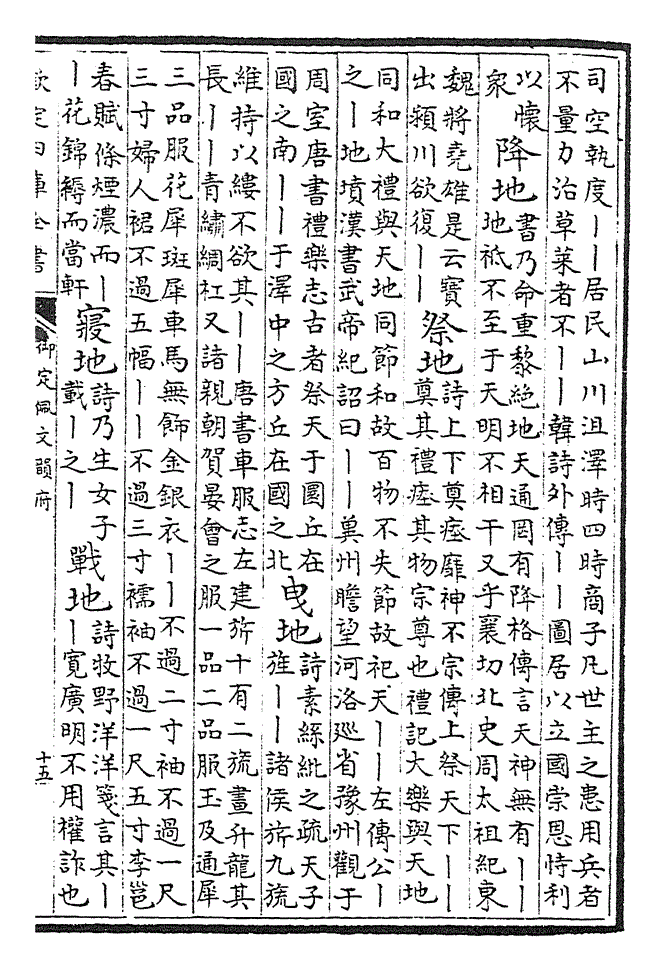 司空執度丨丨居民山川沮澤時四時商子凡世主之患用兵者
不量力治草萊者不丨丨韓詩外傳丨丨圖居以立國崇恩恃利
以懷
衆
降地
書乃命重黎絶地天通罔有降格傳言天神無有丨丨
地祇不至于天明不相干又乎襄切北史周太祖紀東
魏將堯雄是云寶
出頴川欲復丨丨
祭地
詩上下奠瘞靡神不宗傳上祭天下丨丨
奠其禮瘞其物宗尊也禮記大樂與天地
同和大禮與天地同節和故百物不失節故祀天丨丨左傳公丨
之丨地墳漢書武帝紀詔曰丨丨兾州瞻望河洛巡省豫州觀于
周室唐書禮樂志古者祭天于圜丘在
國之南丨丨于澤中之方丘在國之北
曳地
詩素絲紕之疏天子
旌丨丨諸侯旂九旒
維持以縷不欲其丨丨唐書車服志左建旂十有二旒畫升龍其
長丨丨青繡綢杠又諸親朝賀宴會之服一品二品服玉及通犀
三品服花犀斑犀車馬無飾金銀衣丨丨不過二寸袖不過一尺
三寸婦人裙不過五幅丨丨不過三寸襦袖不過一尺五寸李邕
春賦條煙濃而丨
丨花錦縟而當軒
寢地
詩乃生女子
載丨之丨
戰地
詩牧野洋洋箋言其丨
丨寬廣明不用權詐也
欽定四庫全書
御定佩文韻府
十五